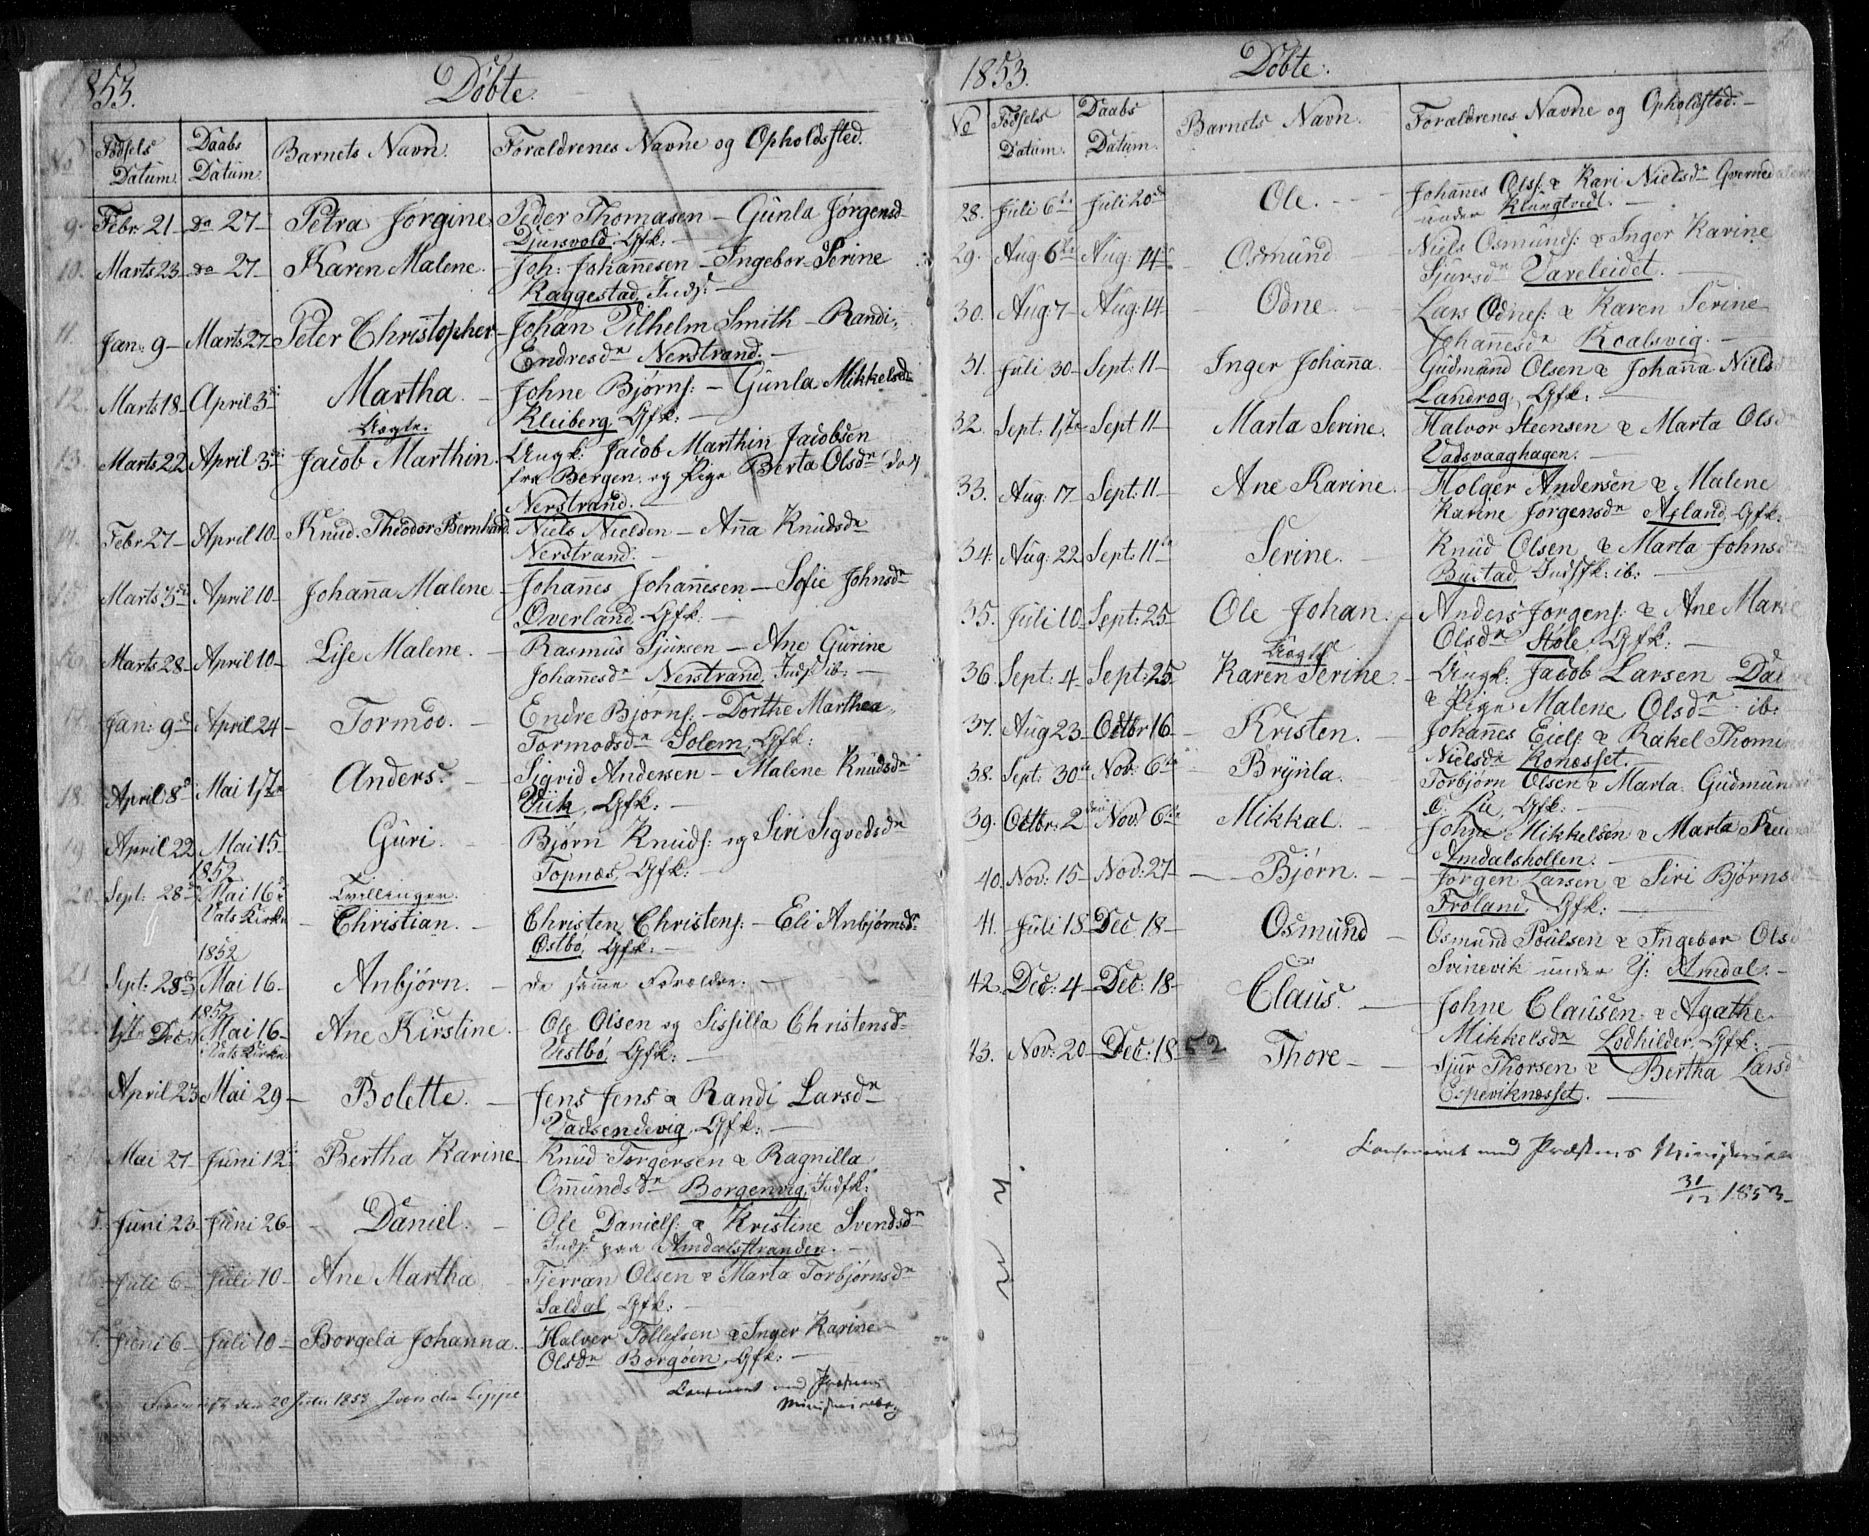 1853. Döbte.
No Födsels Datum. Daabs Datum. Barnets Navn. Forældrenes Navne og Opholdssted.
9. Febr: 21 – do 27 – Petra Jørgine Peder Thomasen – Gunla Jørgensd
Djursvold. Gfk: –
10. Marts 23 – do 27 – Karen Malene. – Joh: Johannesen – Ingebor Serine
Raggestad, Inds: –
11. Jan: 9 – Marts 27 – Peter Christopher – Johan Vilhelm Smith – Randi
Endresdr Nerstrand. –
12. Marts 18 – April 3di Martha. – Johne Bjørns: – Gunla Mikkelsdr
Kleiberg Gfk: –
Uægte.
13. Marts 22 April 3di Jacob Marthin. Ungk: Jacob Marthin Jacobsen
fra Bergen, og Pige Berta Olsdr
Nerstrand. –
14. Febr 27 – April 10 – Knud Theodor Bernhard Niels Nielsen – Anna Knudsdr
Nerstrand. –
15. Marts 3di April 10 – Johanna Malene – Johannes Johannesen – Sofie Johnsdr
Øverland Gfk: –
16. Marts 28 – April 10 – Lise Malene. – Rasmus Sjursen – Ane Gurine
Johannesdr Nerstrand, Inds: ib: –
17. Jan: 9de April 24 – Tormod. – Endre Bjørns: – Dorthe Marthea
Tormodsdr Solem, Gfk:
18. April 8de Mai 1ste Anders. – Sigvid Andersen – Malene Knudsdr
Viik, Gfk: –
19. April 22 Mai 15 – Guri. – Bjørn Knuds: og Siri Sigvedsdr
Topnæs, Gfk: –
1852
20. Sept: 28de Mai 16de Tvillinger.
Vats Kirke – Christian. – Christen Christens: – Eli Anbjørnsdr
Østbø, Gfk: –
1852
21. Sept: 28de Mai 16 – Anbjørn. – de samme Forældre. –
1852
22. 1ste Dec: Mai 16 – Ane Kirstine – Ole Olsen og Sissilla Christensdr
Vats Kirke Vestbø, Gfk: –
23. April 23 Mai 29 – Bolette. – Jens Jens & Randi Larsdr
Vadsendevig, Gfk: –
24. Mai 27 – Juni 12 Bertha Karine Knud Torgersen & Ragnilla
Omundsdr Borgenvig, Indfk:
25. Juni 23 – Juni 26 – Daniel. – Ole Daniels: & Kristine Svendsdr
Inds: paa Amdalsstranden. –
26. Juli 6 – Juli 10 – Ane Martha – Tjerran Olsen & Marta Torbjørnsdr
Sældal Gfk: –
27. Juni 6 – Juli 10 – Borgela Johanna. Halver Tollefsen & Inger Karine
Olsdr Borgøen, Gfk: –
den 20 Juli 1853 Conferert med Præstens
Ministerialbog
1853. Döbte.
No Födsels Datum. Daabs Datum. Barnets Navn. Forældrenes Navne og Opholdsted. –
28. Juli 6te Juli 20de Ole. – Johannes Ols: & Kari Nielsdr
under Klungtvedt. –
29. Aug: 6te Aug: 14de Osmund – Niels Osmunds: & Inger Karine
Sjursdr Vareleidet. –
30. Aug: 7 – Aug: 14 – Odne – Lars Odnes: & Karen Serine
Johannesdr Koalsvig. –
31. Juli 30 – Sept: 11 – Inger Johanna. Gudmund Olsen & Johanna Nielsd
Landrog, Gfk: –
32. Sept: 1ste Sept 11 – Marta Serine. Halvor Steensen & Marta Olsd
Vadsvaaghagen. –
33. Aug: 17 – Sept: 11 – Ane Karine. – Holger Andersen & Malene
Karine Jørgensdr Asland, Gfk:
34. Aug: 22 Sept: 11te Serine. – Knud Olsen & Marta Johnsd
Bystad, Indsfk: ib: –
35. Juli 10 – Sept: 25 – Ole Johan. Anders Jørgens: & Ane Marie
Olsdr Støle, Gfk: –
Uægte
36. Sept: 4 – Sept: 25 – Karen Serine. – Ungk: Jacob Larsen
& Pige Malene Olsdr ib:
37. Aug 23 – Octbr 16 – Kristen. – Johannes Eiels: & Rakel
Nielsdr Konæsset. –
38. Sept: 30te Nov: 6te Brynla. – Torbjørn Olsen & Marta Gudmunds
Lie, Gfk: –
39. Octbr: 2den Nov: 6te Mikkal. – Johne Mikkelsen & Marta
Amdalshollen. –
40. Nov: 15 – Nov: 27 – Bjørn. – Jørgen Larsen & Siri Bjørnsd
Frøland, Gfk: –
41. Juli 18 Dec 18 – Osmund – Osmund Poulsen & Ingebor Olsd
Svinevik under G: Amdal. –
42. Dec: 4 – Dec: 18 – Claus. – Johne Clausen & Agathe
Mikkelsdr Lodhilder, Gfk: –
43. Nov: 20 – Dec: 18 – Thore – Sjur Thorsen & Bertha Larsd
Espeviknæsset. –
Confereret med Præstens Ministerial
31/12 1853 –